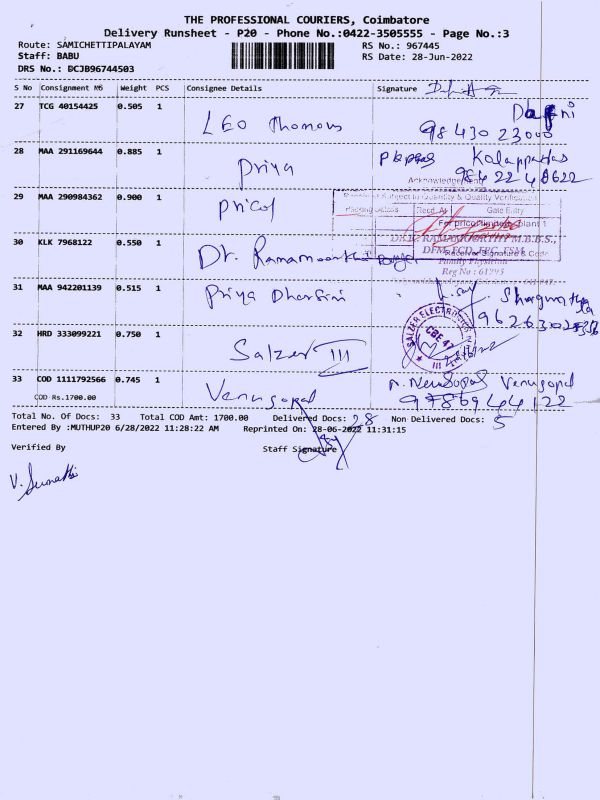 THE PROFESSIONAL COURIERS, Coimbatore
Delivery Runsheet - P20 - Phone No.:0422-3505555 - Page No.:3
Route: SAMICHETTIPALAYAM
Staff: BABU
DRS No.: DCJB96744503
RS No.: 967445
RS Date: 28-Jun-2022
S No Consignment Weight PCS Consignee Details Signature
27 TCG 40154425 0.505 1 LEO Thomous
98430 23000
28 MAA 291169644 0.885 1 Priya
98422 48622
Acknowledgement
Subject to Quantity & Quality Verification
29 MAA 290984362 0.900 1 pricol
Gate Entry
30 KLK 7968122 0.550 1 Dr. Ramamoorthi
DR. RAMAMOORTHY M.B.B.S.,
Family Physician
Reg No : 61395
31 MAA 942201139 0.515 1 Priya Dharsini
32 HRD 333099221 0.750 1 Salzer III
SALZER ELECTRONICS
CBE 47
33 COD 1111792566 0.745 1 Venugopal Venugopal
COD Rs.1700.00
Total No. Of Docs: 33 Total COD Amt: 1700.00 Delivered Docs: 28 Non Delivered Docs: 5
Entered By :MUTHUP20 6/28/2022 11:28:22 AM Reprinted On: 28-06-2022 11:31:15
Verified By Staff Signature